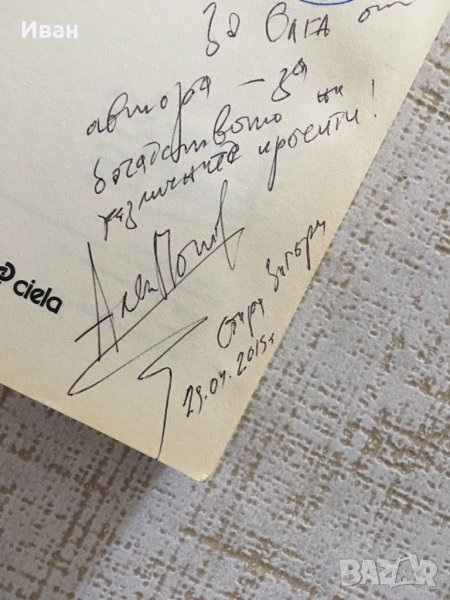 Иван
За Олга от
автора – за
богатството на
различните прочити!
Алек Попов
ciela
Стара Загора
29.04.2015 г.
BAZAR